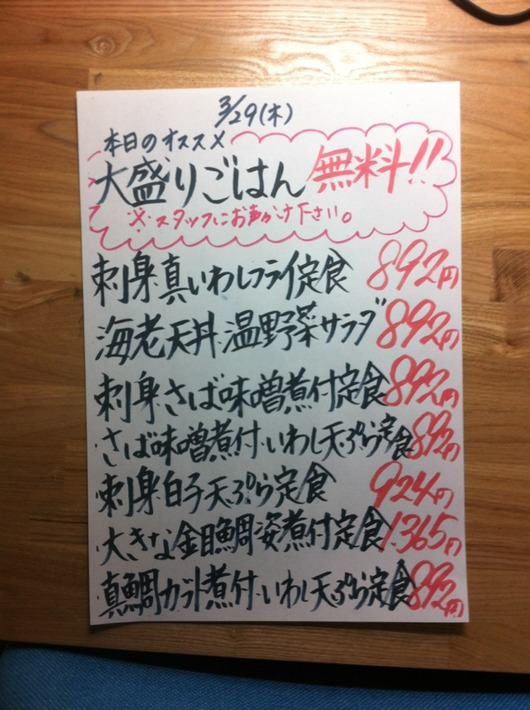 3/29(木)
本日のオススメ
大盛りごはん無料!!
※スタッフにお声がけ下さい。
刺身真いわしフライ定食 892円
海老天丼・温野菜サラダ 892円
刺身さば味噌煮付定食 892円
さば味噌煮付・いわし天ぷら定食 892円
刺身白子天ぷら定食 924円
大きな金目鯛姿煮付定食 1.365円
真鯛カット煮付・いわし天ぷら定食 892円